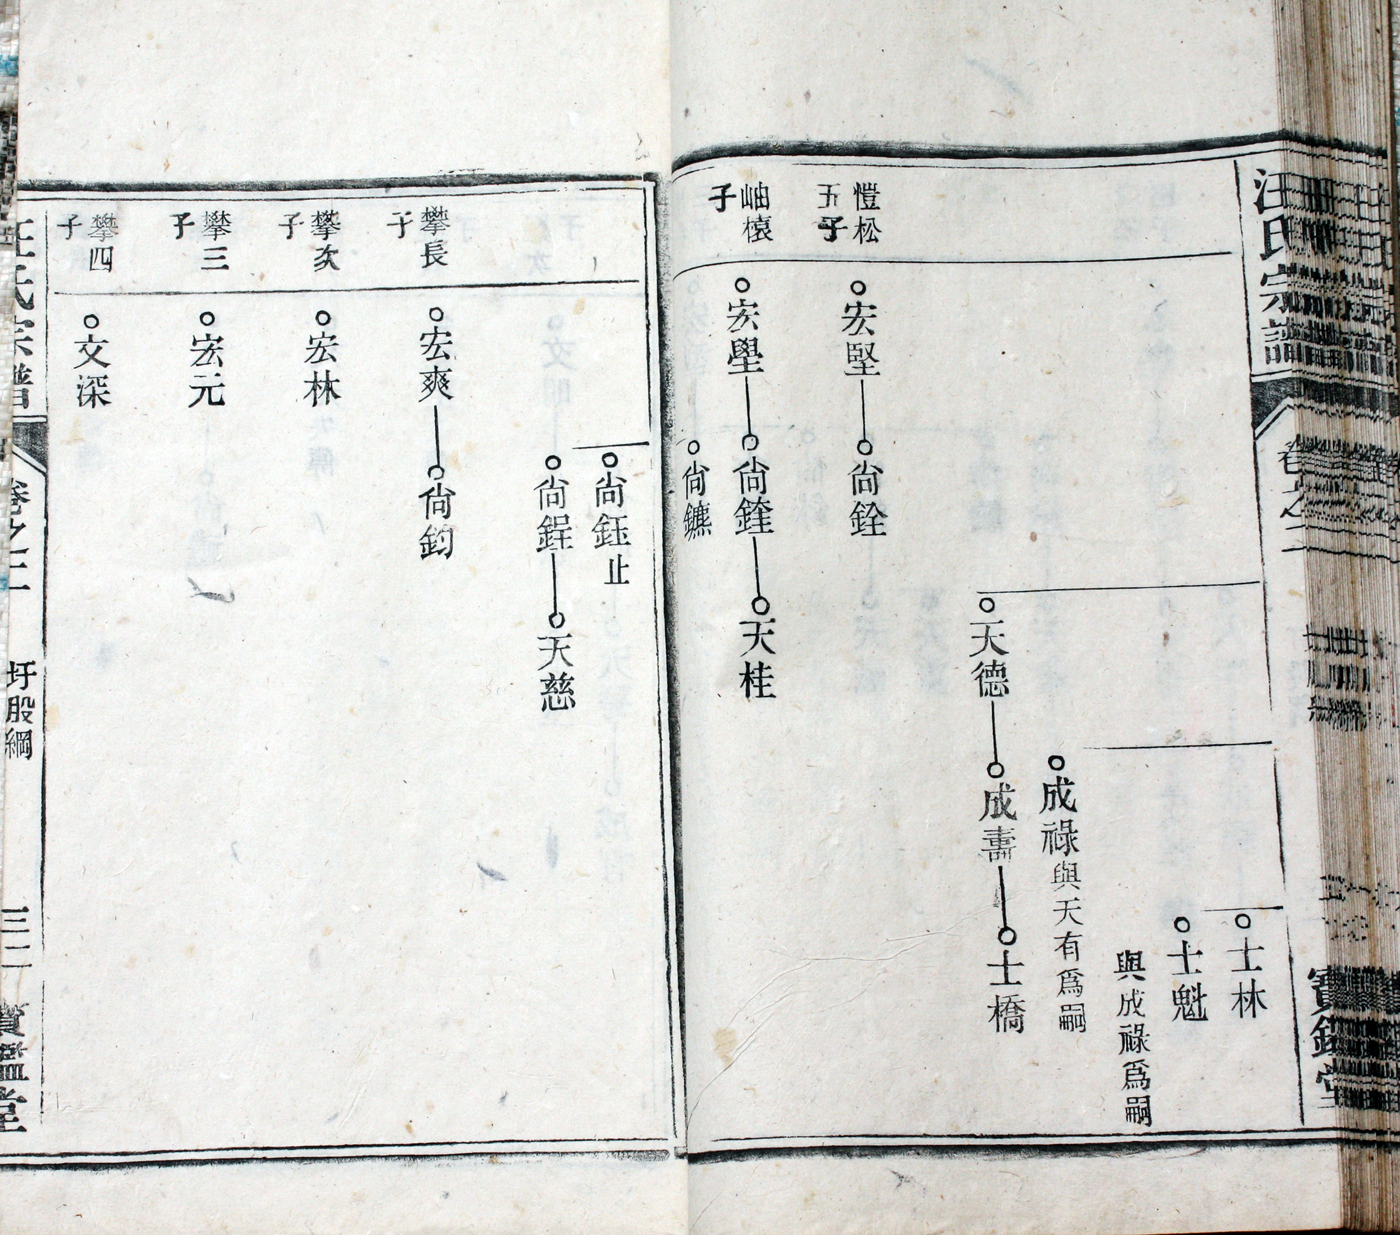 汪氏宗譜
卷之二
寶鑑堂
士林
士魁
與成祿爲嗣
成祿與天有爲嗣
天德
成壽
士橋
愷松
五子
宏堅
尙銓
岫檺
子
宏壆
尙鋒
天桂
尙鑣
尙鈺止
尙鋥
天慈
攀長
子
宏爽
尙鈞
攀次
子
宏林
攀三
子
宏元
攀四
子
文深
汪氏宗譜
卷之二
圩股綱
三二
寶鑑堂